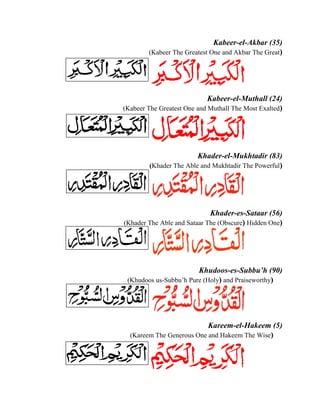 Kabeer-el-Akbar (35)
(Kabeer The Greatest One and Akbar The Great)
الْكَبِيْرُ الْاَكْبَرُ الْكَبِيْرُ الْاَكْبَرُ
Kabeer-el-Muthall (24)
(Kabeer The Greatest One and Muthall The Most Exalted)
الْكَبِيْرُ الْمُتَعَالِ الْكَبِيْرُ الْمُتَعَالِ
Khader-el-Mukhtadir (83)
(Khader The Able and Mukhtadir The Powerful)
الْقَادِرُ الْمُقْتَدِرُ الْقَادِرُ الْمُقْتَدِرُ
Khader-es-Sataar (56)
(Khader The Able and Sataar The (Obscure) Hidden One)
الْقَادِرُ السَّتَّارُ الْقَادِرُ السَّتَّارُ
Khudoos-es-Subbu’h (90)
(Khudoos us-Subbu’h Pure (Holy) and Praiseworthy)
الْقُدُّوْسُ السُّبُّوْحُ الْقُدُّوْسُ السُّبُّوْحُ
Kareem-el-Hakeem (5)
(Kareem The Generous One and Hakeem The Wise)
الْكَرِيْمُ الْحَكِيْمُ الْكَرِيْمُ الْحَكِيْمُ